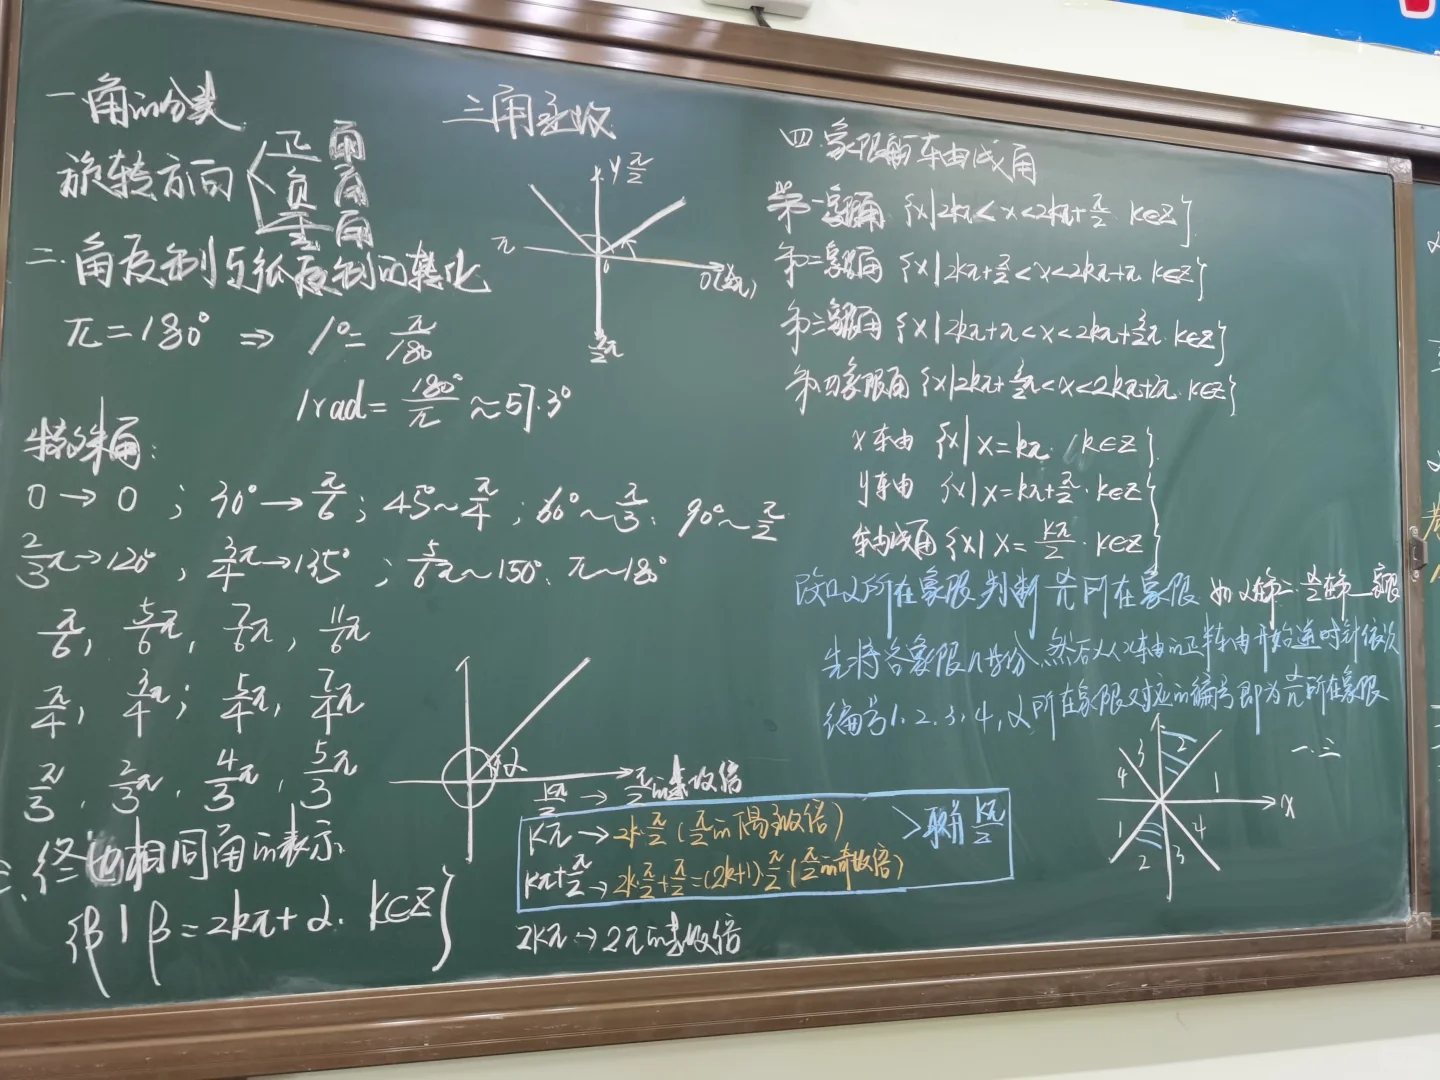 一.角的分类
旋转方向
正角
负角
零角
二.角度制与弧度制的转化
π=180° ⇒ 1°=π/180
1rad=180°/π≈57.3°
特殊角:
0→0 ; 30°→π/6 ; 45°~π/4 ; 60°~π/3 . 90°~π/2
2/3π→120° , 3/4π→135° ; 5/6π~150° . π~180°
π/6 , 5/6π , 7/6π , 11/6π
π/4 , 3/4π ; 5/4π , 7/4π
π/3 . 2/3π . 4/3π , 5/3π
三.终边相同角的表示
{β|β=2kπ+α. k∈Z}
三角函数
y π/2
π
0
0(2π)
3/2π
α
kπ/2→π/2的整数倍
kπ→2k·π/2(π/2的偶数倍)
kπ+π/2→2k·π/2+π/2=(2k+1)·π/2(π/2的奇数倍)
>取并kπ/2
2kπ→2π的整数倍
四.象限角与轴线角
第一象限角 {x|2kπ<x<2kπ+π/2 k∈Z}
第二象限角 {x|2kπ+π/2<x<2kπ+π k∈Z}
第三象限角 {x|2kπ+π<x<2kπ+3/2π. k∈Z}
第四象限角 {x|2kπ+3/2π<x<2kπ+2π. k∈Z}
x轴 {x|x=kπ. k∈Z}
y轴 {x|x=kπ+π/2. k∈Z}
轴线角 {x|x=kπ/2. k∈Z}
已知α所在象限判断α/n所在象限 如α在第二.α/2在第 象限
先将各象限n等份,然后从x轴的正半轴开始逆时针依次
编号1.2.3.4,α所在象限对应的编号即为α/n所在象限
一.三
3 2
4 1
1 4
2 3
x